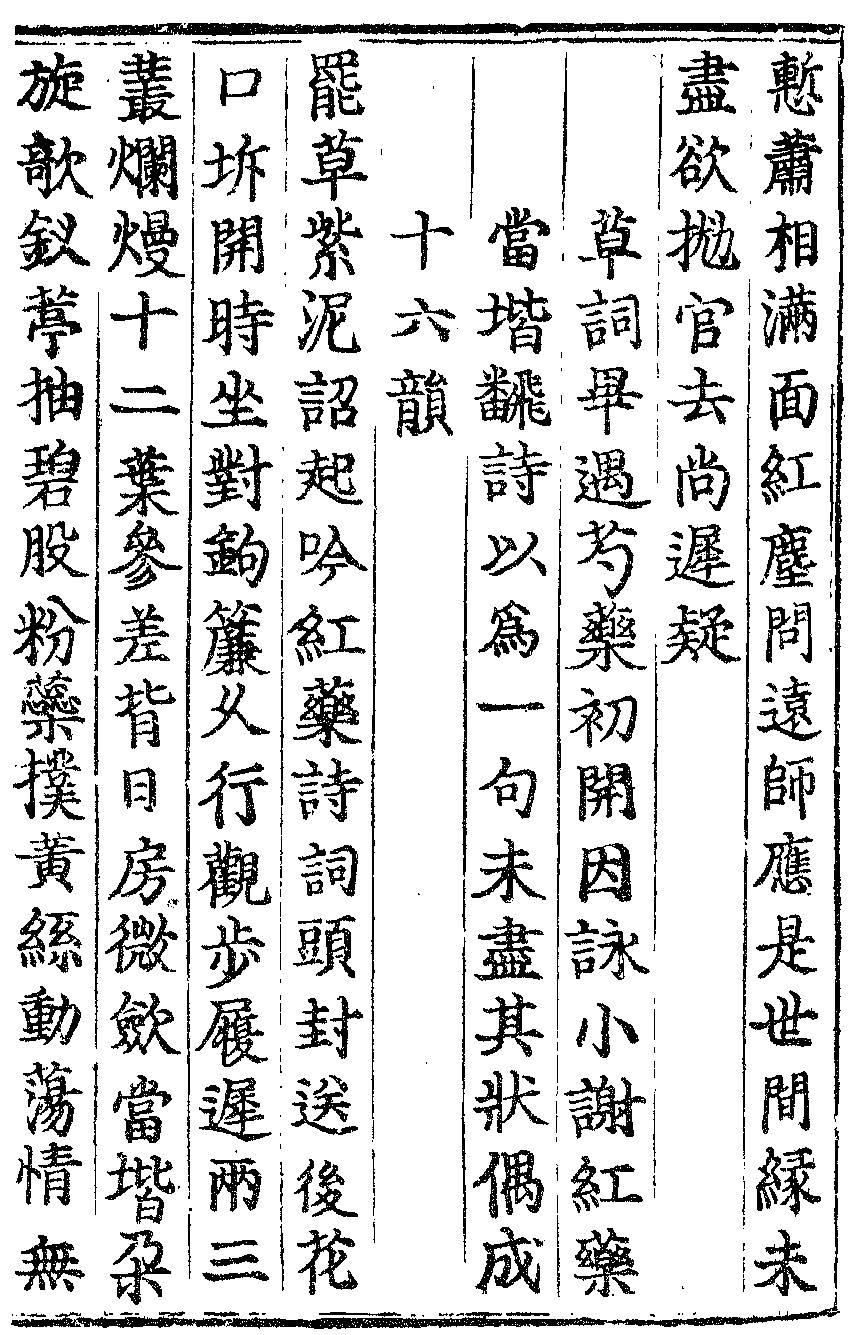 慙蕭相滿面紅塵問遠師應是世間緣未
盡欲拋官去尚遲疑
草詞畢遇芍藥初開因詠小謝紅藥
當堦飜詩以爲一句未盡其狀偶成
十六韻
罷草紫泥詔起吟紅藥詩詞頭封送後花
口坼開時坐對鉤簾久行觀步履遲兩三
叢爛熳十二葉參差背日房微歛當堦朶
旋欹釵葶抽碧股粉蘂撲黃絲動蕩情無